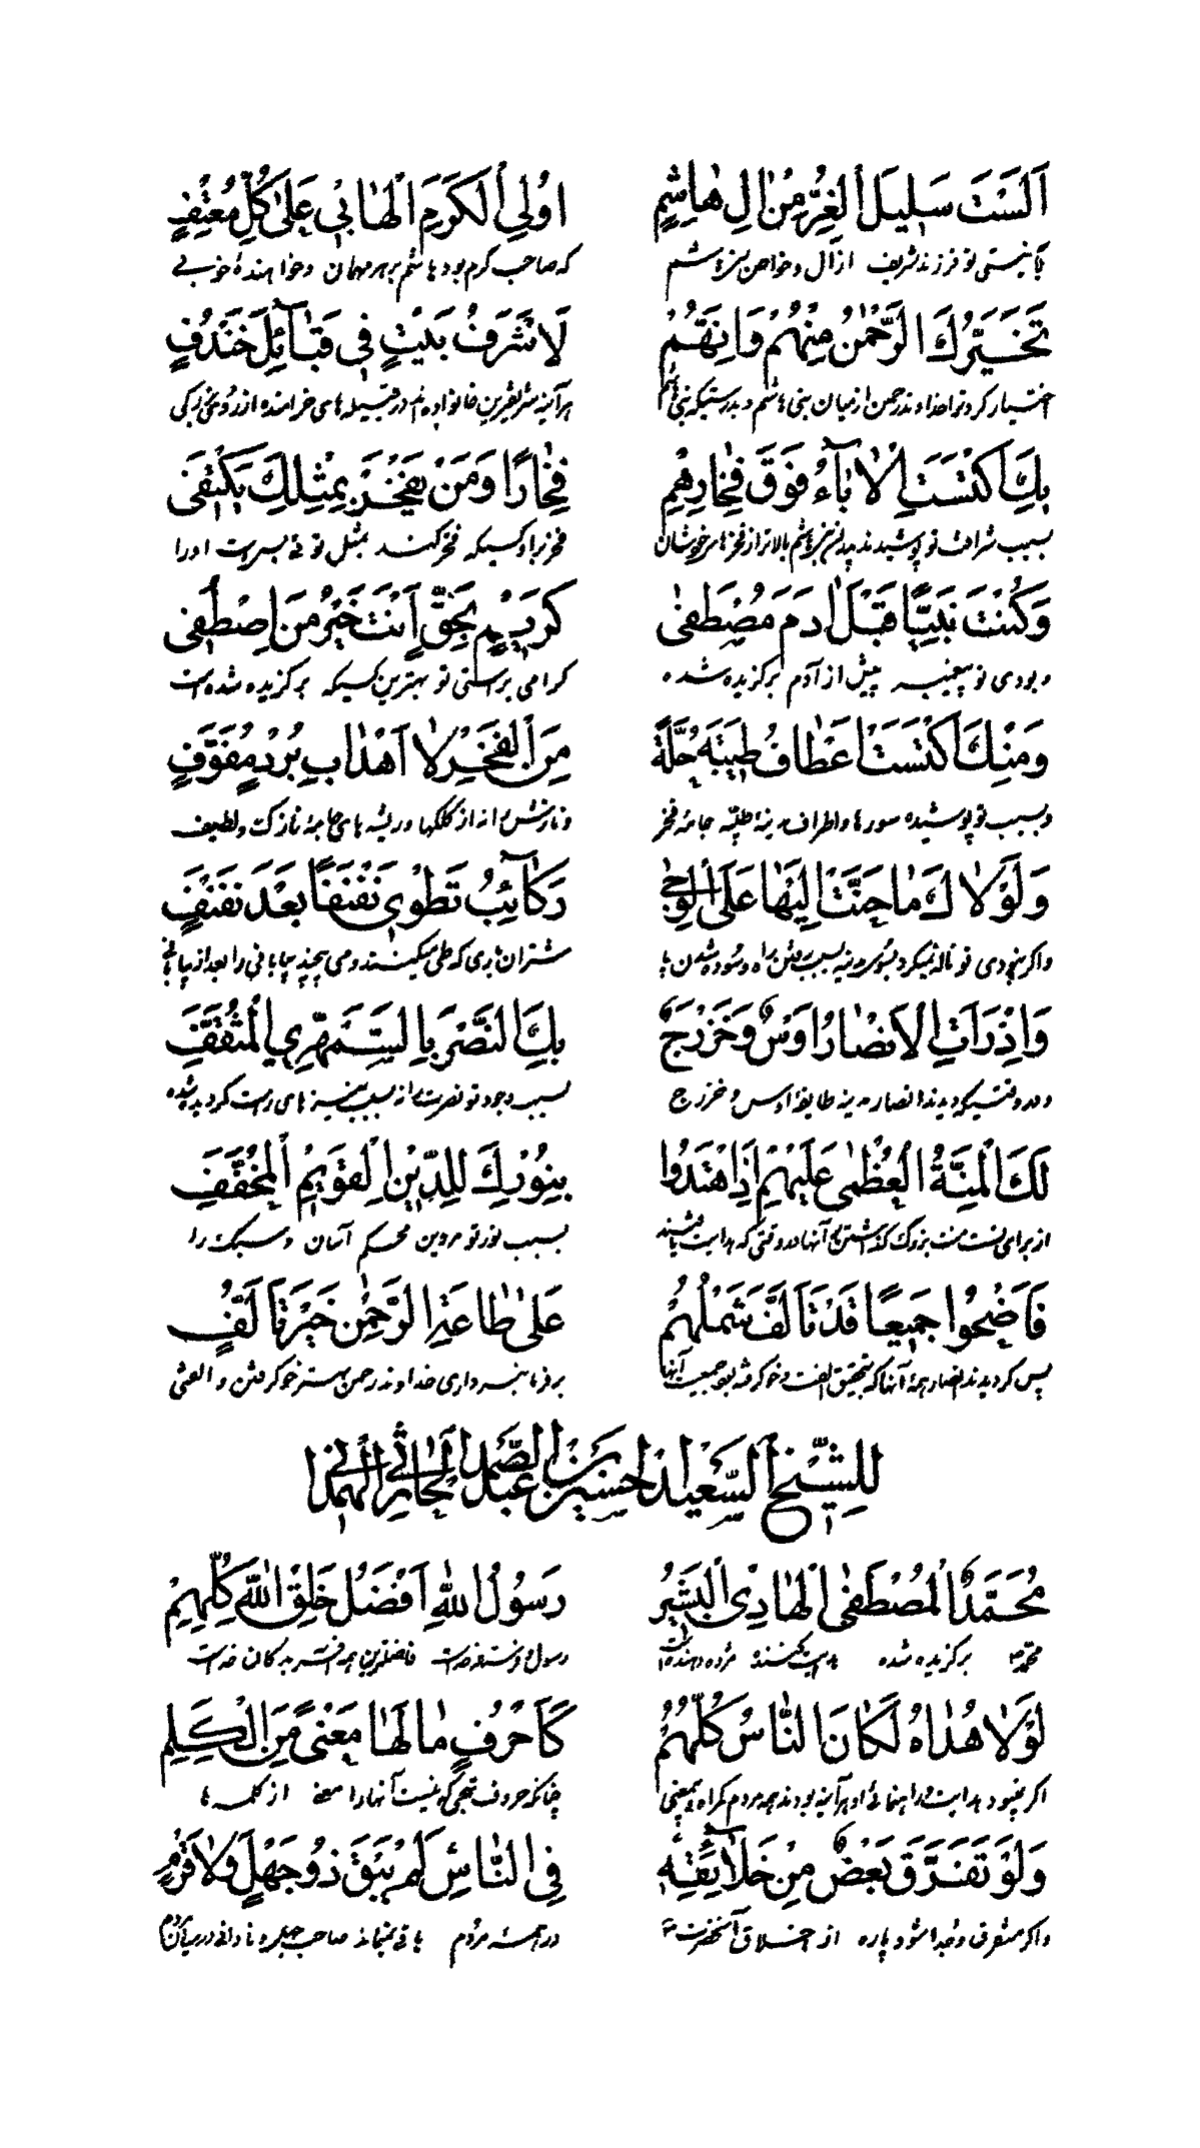 اَلَسْتَ سَلِيلَ الْغُرِّ مِنْ اٰلِ هٰاشِمٍ اُولِي الْكَرَمِ الْهٰامِي عَلىٰ كُلِّ مُعْتَفٍ
نیستی تو فرزند شریف از آل که صاحب کرم بود
تَخَيَّرَكَ الرَّحْمٰنُ مِنْهُمْ وَاِنَّهُمْ لَاَشْرَفُ بَيْتٍ فِي قَبٰآئِلِ خَنْدُفٍ
اختیار کرد تو را خداوند رحمن از میان بنی هاشم و بدرستیکه بنی هاشم هرآینه شریفترین خانواده اند در قبیله های
بِكَ اكْتَسَتِ الْاٰبآءُ فَوْقَ فِخٰارِهِمْ فِخٰارًا وَمَنْ يَفْخَرْ بِمِثْلِكَ يَكْتَفي
بسبب شرافت تو پوشیدند پدران بنی هاشم بالاتر از فخرهای خویشان فخر را و کسیکه فخر کند بمثل تو ئی بس است او را
وَكُنْتَ نَبِيًّا قَبْلَ اٰدَمَ مُصْطَفىٰ كَرِيمٍ بِحَقٍّ اَنْتَ خَيْرُ مَنِ اصْطُفِي
و بودی تو پیغمبر پیش از آدم برگزیده شده گرامی براستی تو بهترین کسیکه برگزیده شده است
وَمِنْكَ اكْتَسَتْ اَعْطٰافُ طَيْبَةَ حُلَّةً مِنَ الْفَخْرِ لاٰ اَهْدٰابِ بُرْدٍ مُفَوَّفٍ
و بسبب تو پوشیده و اطراف مدینهٔ طیّبه جامهٔ فخر و نازش نه از و ریشه های جامهٔ نازک و لطیف
وَلَوْلاٰكَ مٰا حَنَّتْ اِلَيْهٰا عَلَى الْوَجىٰ رَكٰآئِبُ تَطْوي نَفْنَفًا بَعْدَ نَفْنَفٍ
و اگر نبودی تو ناله نمیکرد بسوی مدینه بسبب رفتن راه و سوده شدن پا شتران باری که طی میکنند و می پیچند بیابانی را بعد از بیابانی
وَاِذْ رَاَتِ الْاَنْصٰارُ اَوْسٌ وَخَزْرَجٌ بِكَ النَّصْرَ بِالسَّمْهَرِيِّ الْمُثَقَّفِ
و در وقتیکه دیدند انصار مدینه طایفهٔ اوس و خزرج بسبب وجود تو نصرت را نه بسبب نیزه های راست گردیده شده
لَكَ الْمِنَّةُ الْعُظْمىٰ عَلَيْهِمْ اِذِ اهْتَدَوْا بِنُورِكَ لِلدّينِ الْقَويمِ الْمُخَفَّفِ
از برای تست منت بزرگ گذاشتن بر آنها در وقتی که هدایت یافتند بسبب نور تو مر دین محکم آسان و سبک را
فَاَضْحَوْا جَميعًا قَدْ تَاَلَّفَ شَمْلُهُمْ عَلىٰ طٰاعَةِ الرَّحْمٰنِ خَيْرَ تَاَلُّفٍ
پس گردیدند انصار همهٔ آنها که بتحقیق الفت و خو گرفته بود جمعیت آنها بر فرمانبرداری خداوند رحمن بهتر خو گرفتن و الفتی
لِلشَّيْخِ السَّعيدِ حُسَيْن بْن عَبْدِ الصَّمَدِ الْحٰارِثِي الْهَمْدٰاني
مُحَمَّدٌ الْمُصْطَفَى الْهٰادِي الْبَشيرُ رَسُولُ اللّٰهِ اَفْضَلُ خَلْقِ اللّٰهِ كُلِّهِمِ
محمّد برگزیده شده هدایت کننده مژده دهنده است رسول و فرستاده خداست فاضلترین همه آفریدگان خداست
لَوْلاٰ هُدٰاهُ لَكٰانَ النّٰاسُ كُلُّهُمُ كَاَحْرُفٍ مٰا لَهٰا مَعْنىً مِنَ الْكَلِمِ
اگر نبود هدایت و راهنمائی او هرآینه بودند همه مردم گمراه و بیمعنی چنانکه حروف تهجی که نیست آنها را معنی از کلمه ها
وَلَوْ تَفَرَّقَ بَعْضٌ مِنْ خَلاٰئِقِهِ فِي النّٰاسِ لَمْ يَبْقَ ذُو جَهْلٍ وَلاٰ قَزَمٍ
و اگر متفرق و جدا شود پاره از اخلاق آنحضرت در همه مردم باقی نمیماند صاحب جهل و نادانی